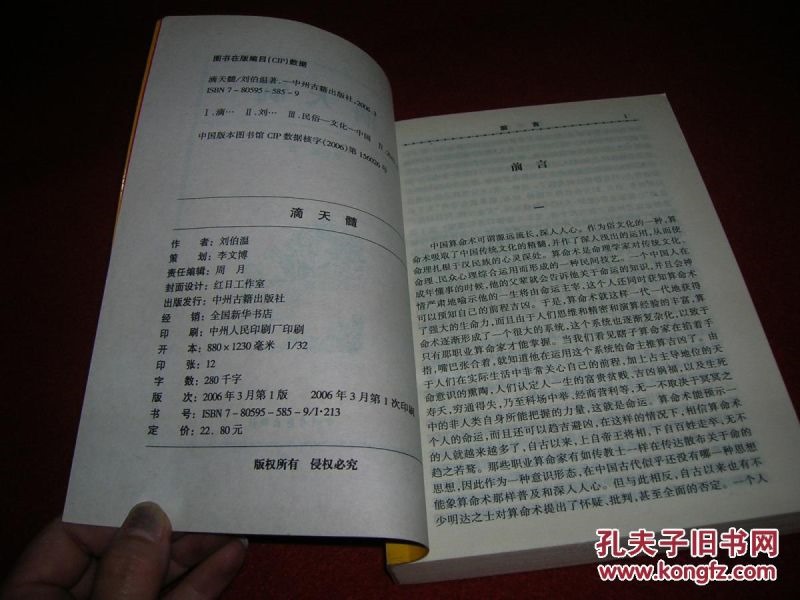 图书在版编目(CIP)数据
滴天髓/刘伯温著.—中州古籍出版社,2006.3
ISBN 7-80595-585-9
Ⅰ.滴… Ⅱ.刘… Ⅲ.民俗—文化—中国 Ⅳ
中国版本图书馆 CIP 数据核字(2006)第 156026 号
滴 天 髓
作 者:刘伯温
策 划:李文博
责任编辑:周 月
封面设计:红日工作室
出版发行:中州古籍出版社
经 销:全国新华书店
印 刷:中州人民印刷厂印刷
开 本:880×1230毫米 1/32
印 张:12
字 数:280千字
版 次:2006年3月第1版 2006年3月第1次印刷
书 号:ISBN 7-80595-585-9/I·213
定 价:22.80元
版权所有 侵权必究
前 言 1
前 言
一
中国算命术可谓源远流长,深入人心。作为俗文化的一种,算
命术吸取了中国传统文化的精髓,并作了深入浅出的运用,从而使
命理扎根于汉民族的心灵深处。算命术是命理学家对传统文化、
命理、民众心理综合运用而形成的一种民间技艺。一个中国人在
成年懂事的时候,他的父辈就会告诉他关于命运的知识,并且会神
情严肃地喻示他的一生将由命运主宰,这个人还同时获知算命术
可以预知自己的前程吉凶。于是,算命术就这样一代一代地获得
了强大的生命力,而且由于人们思维和精密和演算经验的丰富,算
命术逐渐形成了一个很大的系统,这个系统也逐渐复杂化,以致于
只有那职业算命家才能掌握。当我们看见瞎子算命家在掐着手
指,嘴巴张合着,就知道他在运用这个系统给命主推算吉凶了。由
于人们在实际生活中非常关心自己的前程,加上占主导地位的天
命意识的熏陶,人们认定人一生的富贵贫贱,吉凶祸福,以及生死
寿夭,穷通得失,乃至科场中举、经商营利等,无一不取决于冥冥之
中的非人类自身所能把握的力量,这就是命运。算命术能预示一
个人的命运,而且还可以趋吉避凶,在这样的情况下,相信算命术
的人就越来越多了,自古以来,上自帝王将相,下自百姓走卒,无不
趋之若鹜。那些职业算命家有如传教士一样在传达散布关于命的
思想,因此作为一种意识形态,在中国古代似乎还没有哪一种思想
能象算命术那样普及和深入人心。但与此相反,自古以来也有不
少明达之士对算命术提出了怀疑、批判,甚至全面的否定。一个人
孔夫子旧书网
www.kongfz.com